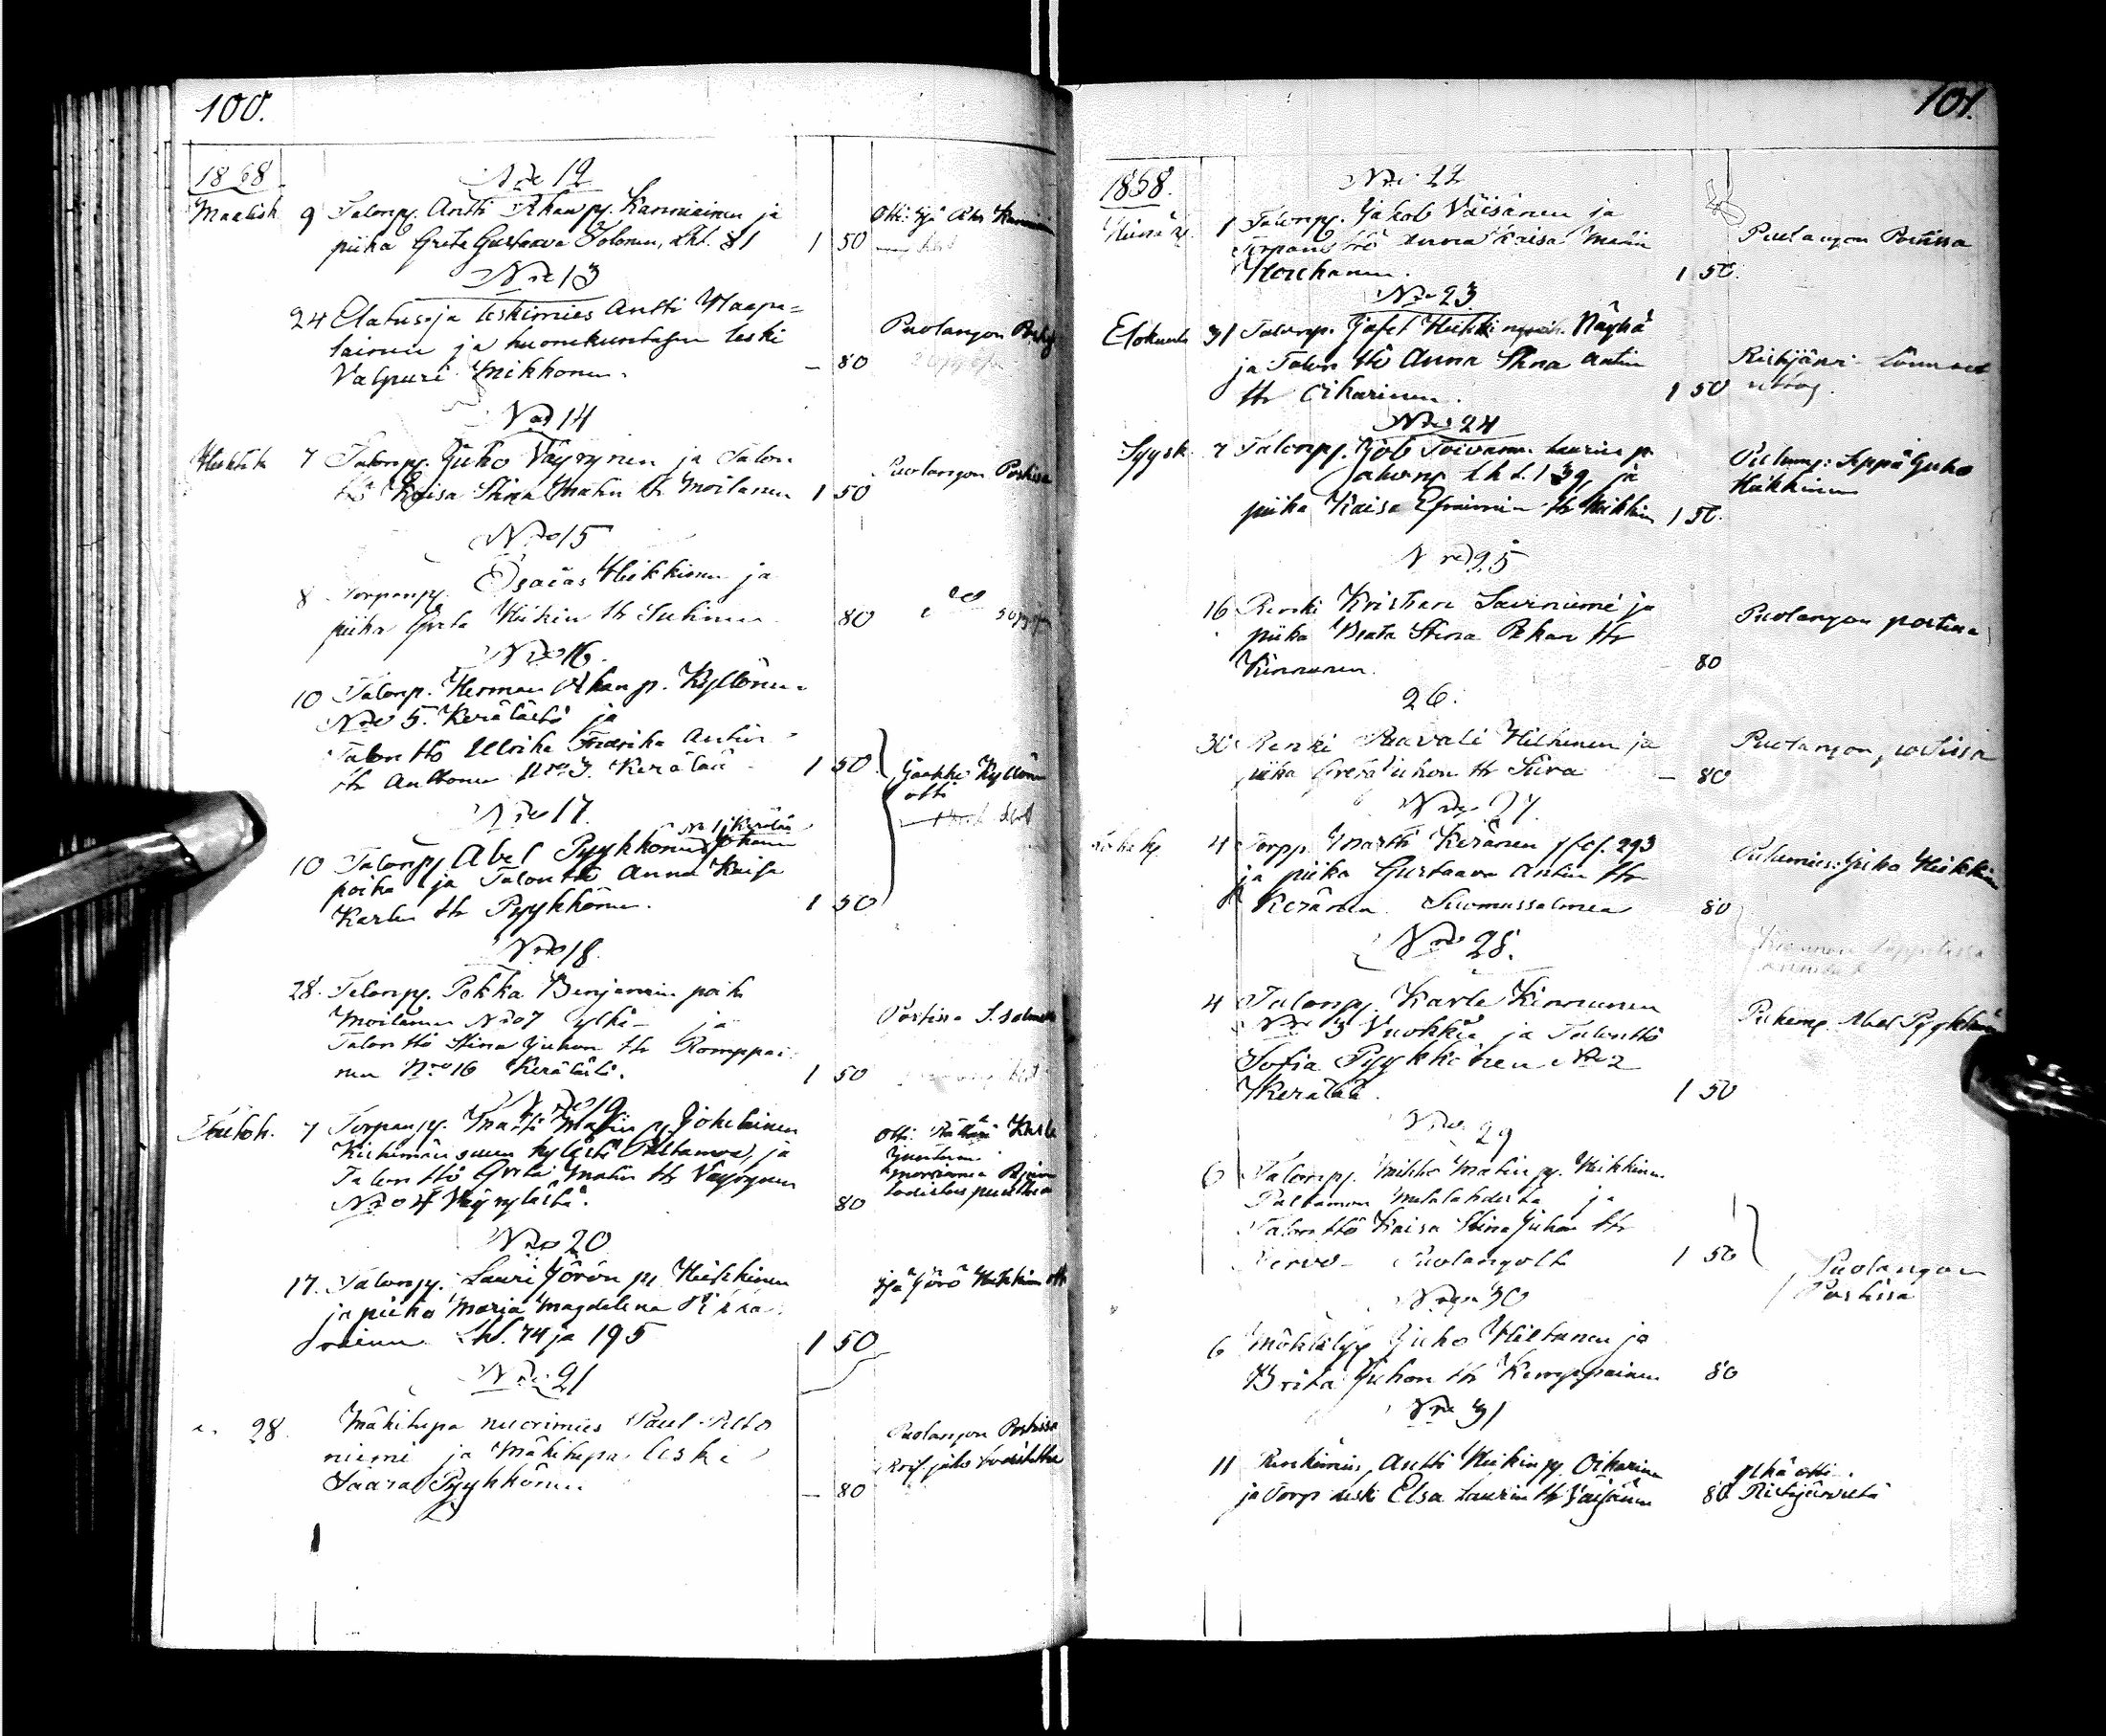 100.
1868
Nro 12
Maalisk. 9 Talonp. Antti Pekan p. Kanniainen ja
piika Greta Gustaava Tolonen, Lhl. 81 1 50
Otti isä
Nro 13
24 Elatus ja leskimies Antti Haapa-
lainen ja huonekuntasen leski
Valpuri Mikkonen. – 80
Puolangon
Nro 14
Huhtik. 7 Talonp. Juho Väyrynen ja Talon
ttö Kaisa Stina Matin tr Moilanen 1 50
Puolangon Postissa
Nro 15
8 Torpanp. Esaias Heikkinen ja
piika Greta Heikin tr Juhinen 80
Nro 16.
10 Talonp. Herman p. Kyllönen
Nro 5. Kerälästä ja
Talon ttö Ulrika Fredrika Antin
tr Anttonen Nro 3. Kerälää 1 50
Jaakko Kyllönen
otti
Nro 17.
10 Talonp. Abel Pyykkönen Johanin
Nr 1, Kerälä
poika ja Talon ttö Anna Kaisa
Karlin tr Pyykkönen. 1 50
Nro 18.
28. Talonp. Pekka Benjamin poika
Moilanen Nro 7 ja
Talon ttö Stina Juhon tr Romppai-
nen Nro 16 Kerälästä. 1 50
Postissa S.salmelle
Nro 19
Toukok. 7 Torpanp. Matti Matin p.
kylästä Paltamoa, ja
Talon ttö Greta Matin tr Väyrynen
Nro 4 Väyrylästä. 80
Otti Karle
Juntunen
todistus puuttuu
Nro 20
17. Talonp. Lauri Jörön p. Heikkinen
ja piika Maria Magdalena
Lhl. 74 ja 195 1 50
isä Jörö Heikkinen otti
Nro 21
28. Mäkitupa nuorimies Paul Aldo
niemi ja Mäkitupa leski
Saara Pyykkönen – 80
Puolangon Postissa
101.
1868.
Nro 22
Heinäk. 1 Talonp. Jakob Väisänen ja
Torpan ttö Anna Kaisa Matin
1 50.
Puolangon Postissa
Nro 23
Elokuuta 31 Talonp. Jafet Heikki Näykä
ja Talon ttö Anna Stina Antin
tr Oikarinen. 1 50
Ristijärvi
Nro 24
Syysk. 7 Talonp. Job Toivanen Laurin p.
Lhl. 139, ja
piika Kaisa Efraimin tr Heikkin 1 50.
Puhemp: Seppä Juho
Heikkinen
Nro 25
16 Renki Kristian Saviniemi ja
piika Beata Stina Pekan tr
Kinnunen. – 80
Puolangon postissa
26.
30 Renki Paavali Hiltunen ja
piika Greta Juhon tr – 80
Puolangon postissa
Nro 27.
Lokak. 4 Torpp. Martti Keränen 293
ja piika Gustaava Antin tr
Keränen Suomussalmea 80
Puhemies: Juho Heikkinen
Nro 28.
4 Talonp. Karle Kinnunen
Nro 3 Vuokki ja Talonttö
Sofia Pyykkönen Nro 2
Kerälää. 1 50
Puhemp. Abel Pyykkönen
Nro 29
6 Talonp. Mikko Matin p. Heikkinen
Paltamon Mieslahdesta ja
Talon ttö Kaisa Stina Juhon tr
Puolangolta 1 50
Puolangon
Postissa
Nro 30
6 Juho Hiltunen ja
Brita Juhon tr Kemppainen 80
Nro 31
11 Renkimies Antti Heikin p. Oikarinen
ja Torp leski Elsa Laurin tr Väisänen 80
otti
Ristijärveltä